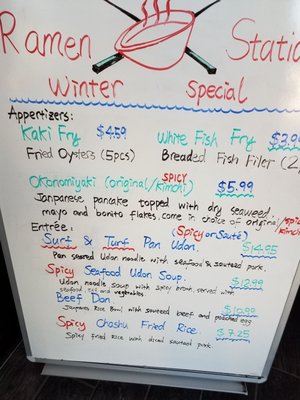 Ramen Statio
Winter Special
Appertizers:
Kaki Fry $4.59 White Fish Fry $3.9
Fried Oysters (5pcs) Breaded Fish Filer (2
Okonomiyaki (original/spicy Kimchi) $5.99
Janpanese pancake topped with dry seaweed
mayo and bonito flakes, come in choice of original/spicy kimchi
Entrée:
Surf & Turf Pan Udon. (Spicy or Sauté) $14.95
Pan steared Udon noodle with seafood & sauteed pork.
Spicy Seafood Udon Soup. $12.99
Udon noodle soup with spicy broth served with
seafood, egg and vegetables.
Beef Don. $10.99
Janpanese Rice Bowl with sauteed beef and poached egg
Spicy Chashu Fried Rice. $7.25
Spicy fried rice with diced sauteed pork.